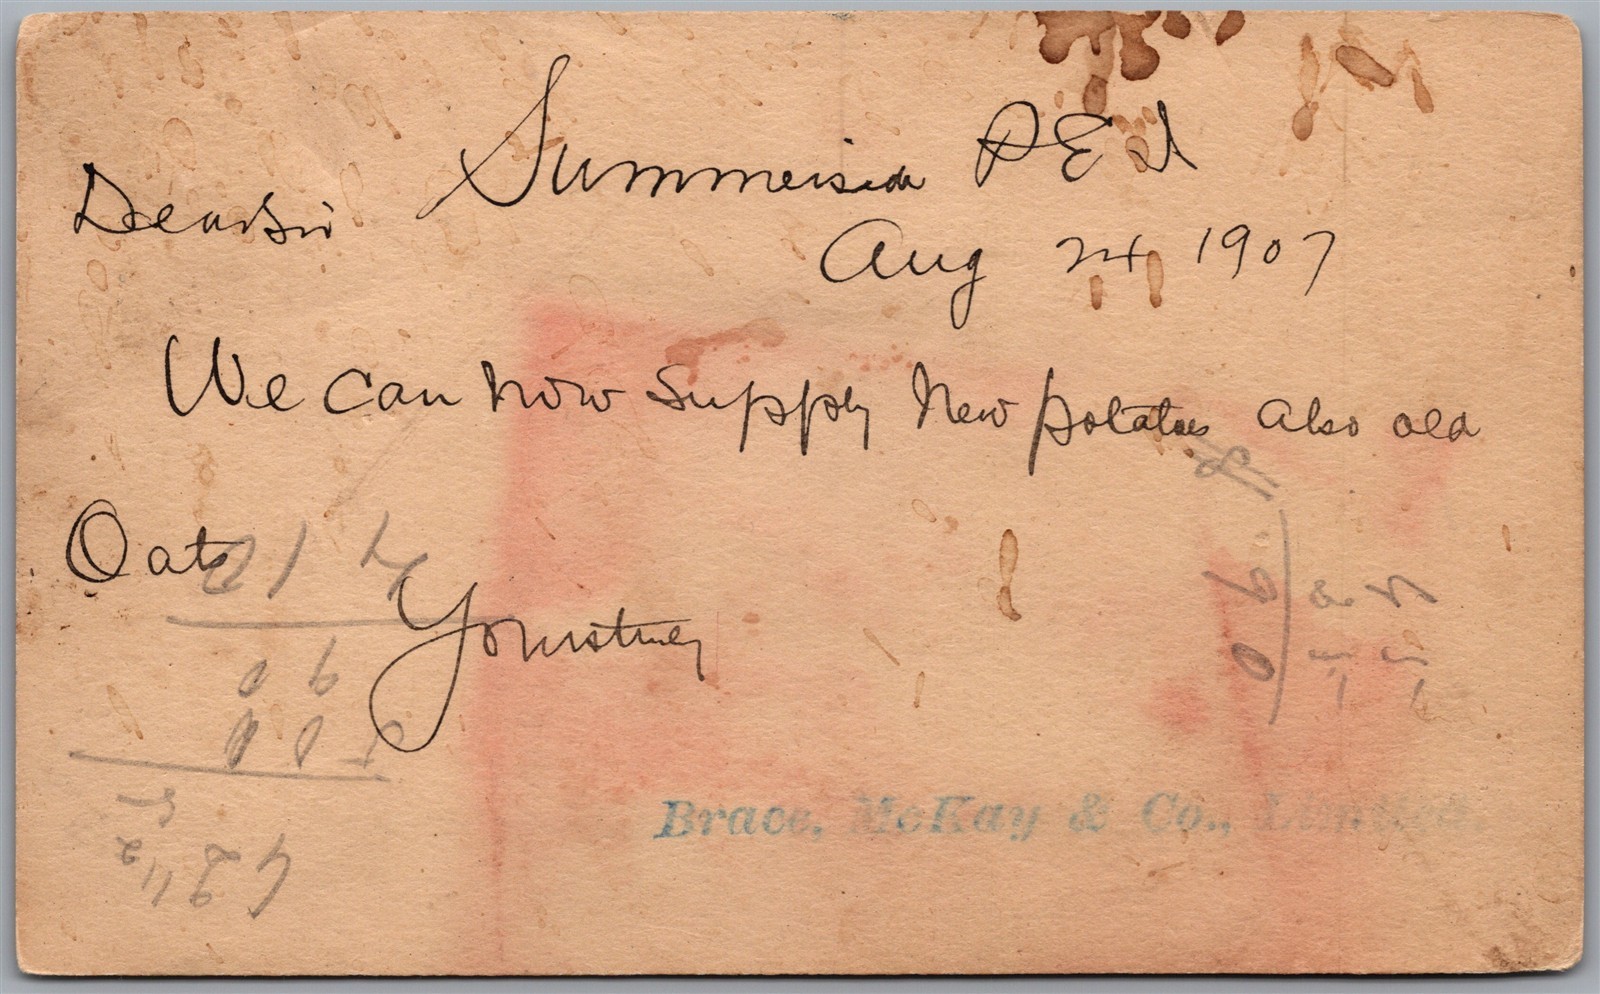 Summerside P E I
Dear Sir
Aug 24 1907
We can now supply New potatoes also old
Oats
Yours truly
Brace, McKay & Co., Limited